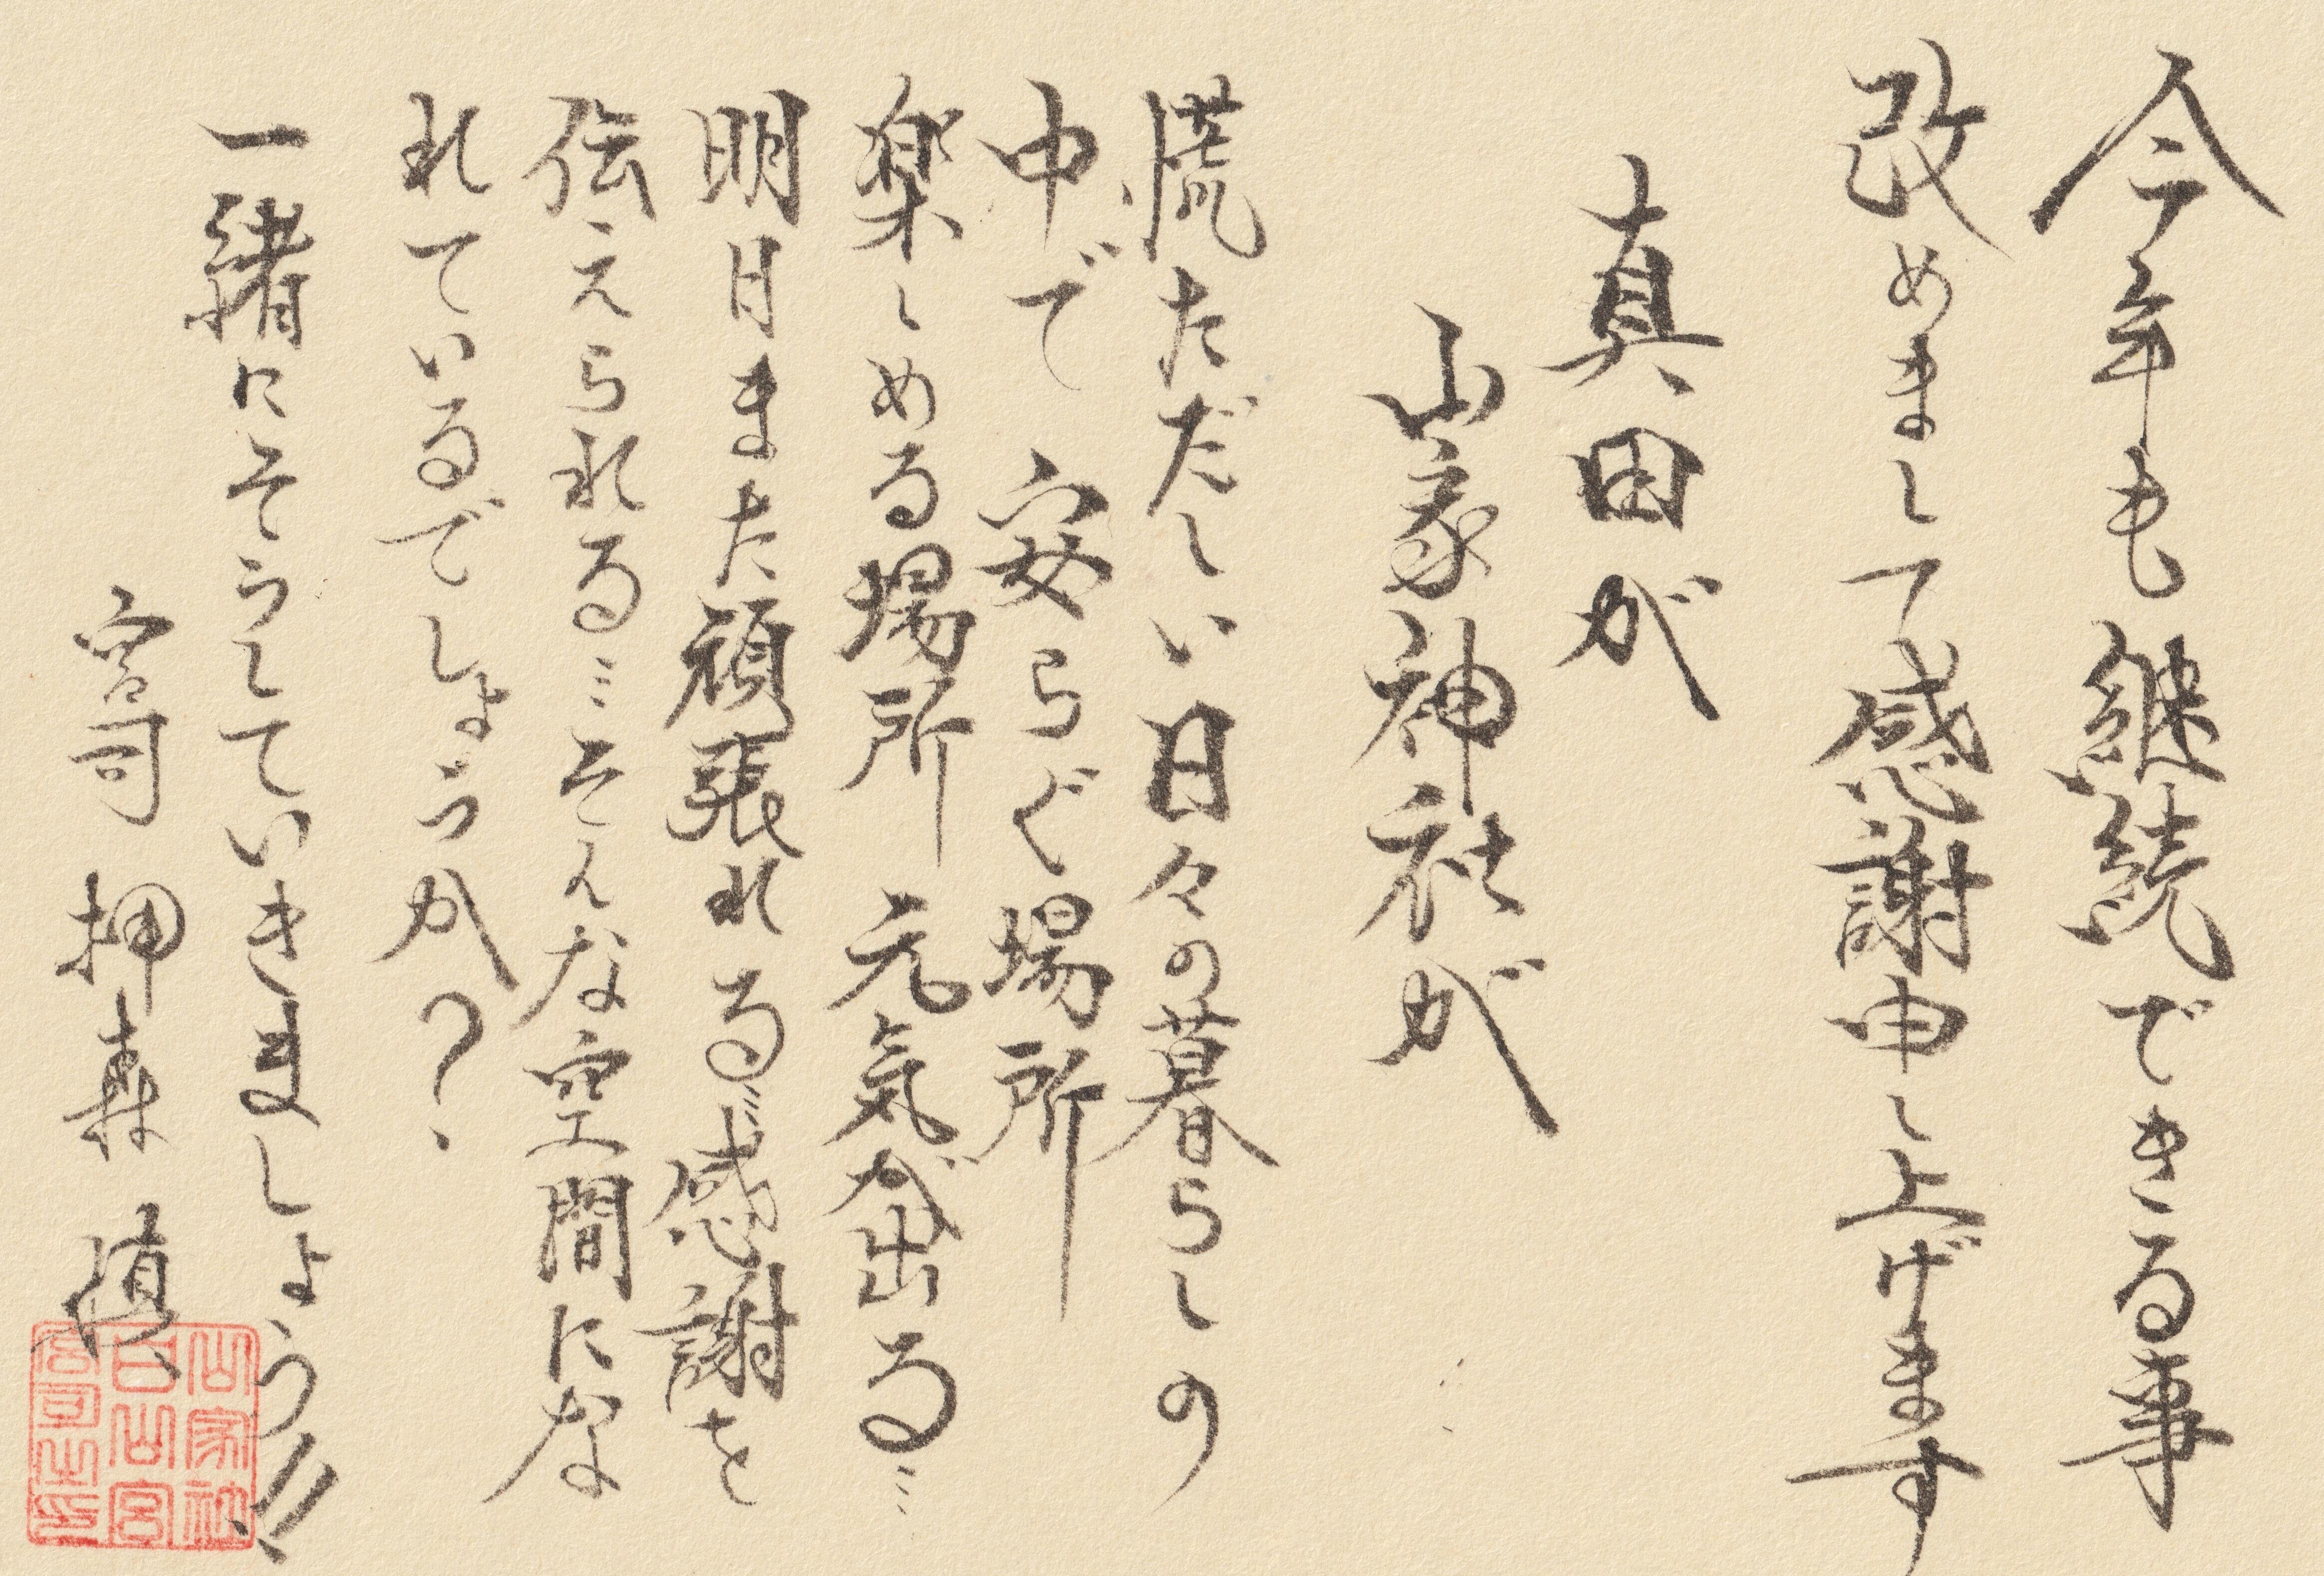 今年も継続できる事
改めまして感謝申し上げます
真田が
山家神社が
慌ただしい日々の暮らしの
中で 安らぐ場所
楽しめる場所 元気が出る…
明日また頑張れる…感謝を
伝えられる…そんな空間にな
れているでしょうか?
一緒にそうしていきましょう!!
宮司 押森 慎
山家社
白山宮
宮司之印